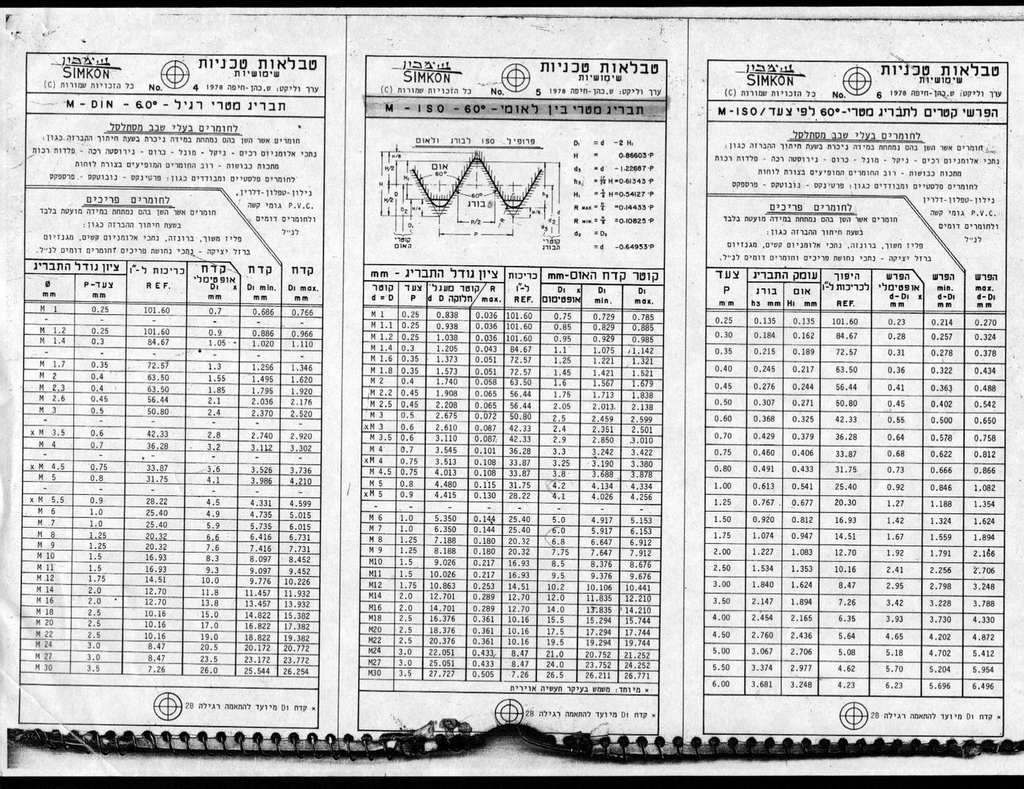 טבלאות טכניות
שימושיות
SIMKON
ערך וליקט: ש.כהן-חיפה 1978
No. 4
כל הזכויות שמורות (C)
תבריג מטרי רגיל - M - DIN - 60°
לחומרים בעלי שבב מסתלסל
חומרים אשר השן בהם נמתחת במידה ניכרת בשעת חיתוך ההברזה כגון:
נתכי אלומניום רכים - ניקל - מונל - כרום - נירוסטה רכה - פלדות רכות
מתכות כבושות - רוב החומרים המופיעים בצורת לוחות
חומרים פלסטיים ומבודדים כגון: פרטינקס - נובוטקס - פרספקס
נילון-טפלון-דלרין,
P.V.C. גומי קשה
ולחומרים דומים
לנ"ל
לחומרים פריכים
חומרים אשר השן בהם נמתחת במידה מועטת בלבד
בשעת חיתוך ההברזה כגון:
פליז משוך, ברונזה, נתכי אלומניום קשים, מגנזיום
ברזל יציקה - נתכי נחושת פריכים וחומרים דומים לנ"ל.
ציון גודל התבריג כריכות ל-1" קדח אופטימלי קדח קדח
Ø mm P-צעד mm REF. D1 x mm D1 min. mm D1 max. mm
M 1 0.25 101.60 0.7 0.686 0.766
- - - - - -
M 1.2 0.25 101.60 0.9 0.886 0.966
M 1.4 0.3 84.67 1.05 1.020 1.110
- - - - - -
M 1.7 0.35 72.57 1.3 1.256 1.346
M 2 0.4 63.50 1.55 1.495 1.620
M 2.3 0.4 63.50 1.85 1.795 1.920
M 2.6 0.45 56.44 2.1 2.036 2.176
M 3 0.5 50.80 2.4 2.370 2.520
- - - - - -
xM 3.5 0.6 42.33 2.8 2.740 2.920
M 4 0.7 36.28 3.2 3.112 3.302
- - - - - -
xM 4.5 0.75 33.87 3.6 3.526 3.736
M 5 0.8 31.75 4.1 3.986 4.210
- - - - - -
xM 5.5 0.9 28.22 4.5 4.331 4.599
M 6 1.0 25.40 4.9 4.735 5.015
M 7 1.0 25.40 5.9 5.735 6.015
M 8 1.25 20.32 6.6 6.416 6.731
M 9 1.25 20.32 7.6 7.416 7.731
M 10 1.5 16.93 8.3 8.097 8.452
M 11 1.5 16.93 9.3 9.097 9.452
M 12 1.75 14.51 10.0 9.776 10.226
M 14 2.0 12.70 11.8 11.457 11.932
M 16 2.0 12.70 13.8 13.457 13.932
M 18 2.5 10.16 15.0 14.822 15.382
M 20 2.5 10.16 17.0 16.822 17.382
M 22 2.5 10.16 19.0 18.822 19.382
M 24 3.0 8.47 20.5 20.172 20.772
M 27 3.0 8.47 23.5 23.172 23.772
M 30 3.5 7.26 26.0 25.544 26.254
× קדח D1 מיועד להתאמה רגילה 2B
טבלאות טכניות
שימושיות
SIMKON
ערך וליקט: ש.כהן-חיפה 1978
No. 5
כל הזכויות שמורות (C)
תבריג מטרי בין לאומי - M - ISO - 60°
פרופיל ISO לבורג ולאום
אום
60°
בורג
P/2
P
קוטרי האום
קוטרי הבורג
D1 = d -2 H1
H = 0.86603·P
d3 = d -1.22687·P
=0.61343·P
=0.54127·P
=0.14433·P
=0.10825·P
d2 = D2
= d -0.64953·P
ציון גודל התבריג - mm כריכות ל-1" קוטר קדח האום-mm
קוטר d = D צעד P קוטר מעגל חלוקה d D R max. REF. D1 x אופטימום D1 min. D1 max.
M 1 0.25 0.838 0.036 101.60 0.75 0.729 0.785
M 1.1 0.25 0.938 0.036 101.60 0.85 0.829 0.885
M 1.2 0.25 1.038 0.036 101.60 0.95 0.929 0.985
M 1.4 0.3 1.205 0.043 84.67 1.1 1.075 1.142
M 1.6 0.35 1.373 0.051 72.57 1.25 1.221 1.321
M 1.8 0.35 1.573 0.051 72.57 1.45 1.421 1.521
M 2 0.4 1.740 0.058 63.50 1.6 1.567 1.679
M 2.2 0.45 1.908 0.065 56.44 1.75 1.713 1.838
M 2.5 0.45 2.208 0.065 56.44 2.05 2.013 2.138
M 3 0.5 2.675 0.072 50.80 2.5 2.459 2.599
xM 3 0.6 2.610 0.087 42.33 2.4 2.351 2.501
M 3.5 0.6 3.110 0.087 42.33 2.9 2.850 3.010
M 4 0.7 3.545 0.101 36.28 3.3 3.242 3.422
xM 4 0.75 3.513 0.108 33.87 3.25 3.190 3.380
M 4.5 0.75 4.013 0.108 33.87 3.8 3.688 3.878
M 5 0.8 4.480 0.115 31.75 4.2 4.134 4.334
xM 5 0.9 4.415 0.130 28.22 4.1 4.026 4.256
- - - - - - - -
M 6 1.0 5.350 0.144 25.40 5.0 4.917 5.153
M 7 1.0 6.350 0.144 25.40 6.0 5.917 6.153
M 8 1.25 7.188 0.180 20.32 6.8 6.647 6.912
M 9 1.25 8.188 0.180 20.32 7.75 7.647 7.912
M10 1.5 9.026 0.217 16.93 8.5 8.376 8.676
M11 1.5 10.026 0.217 16.93 9.5 9.376 9.676
M12 1.75 10.863 0.253 14.51 10.2 10.106 10.441
M14 2.0 12.701 0.289 12.70 12.0 11.835 12.210
M16 2.0 14.701 0.289 12.70 14.0 13.835 14.210
M18 2.5 16.376 0.361 10.16 15.5 15.294 15.744
M20 2.5 18.376 0.361 10.16 17.5 17.294 17.744
M22 2.5 20.376 0.361 10.16 19.5 19.294 19.744
M24 3.0 22.051 0.433 8.47 21.0 20.752 21.252
M27 3.0 25.051 0.433 8.47 24.0 23.752 24.252
M30 3.5 27.727 0.505 7.26 26.5 26.211 26.771
× מיוחד: משמש בעיקר תעשיה אוירית
× קדח D1 מיועד להתאמה רגילה 2B
טבלאות טכניות
שימושיות
SIMKON
ערך וליקט: ש.כהן-חיפה 1978
No. 6
כל הזכויות שמורות (C)
הפרשי קטרים לתבריג מטרי-60° לפי צעד/M-ISO
לחומרים בעלי שבב מסתלסל
חומרים אשר השן בהם נמתחת במידה ניכרת בשעת חיתוך ההברזה כגון:
נתכי אלומניום רכים - ניקל - מונל - כרום - נירוסטה רכה - פלדות רכות
מתכות כבושות - רוב החומרים המופיעים בצורת לוחות
חומרים פלסטיים ומבודדים כגון: פרטינקס - נובוטקס - פרספקס
נילון-טפלון-דלרין
P.V.C. גומי קשה
ולחומרים דומים
לנ"ל
לחומרים פריכים
חומרים אשר השן בהם נמתחת במידה מועטת בלבד
בשעת חיתוך ההברזה כגון:
פליז משוך, ברונזה, נתכי אלומניום קשים, מגנזיום
ברזל יציקה - נתכי נחושת פריכים וחומרים דומים לנ"ל.
צעד עומק התבריג היפוך לכריכות ל-1" הפרש אופטימלי הפרש הפרש
P mm בורג h3 mm אום H1 mm REF. d-D1 x mm min. d-D1 mm max. d-D1 mm
0.25 0.135 0.135 101.60 0.23 0.214 0.270
0.30 0.184 0.162 84.67 0.28 0.257 0.324
0.35 0.215 0.189 72.57 0.31 0.278 0.378
0.40 0.245 0.217 63.50 0.36 0.322 0.434
0.45 0.276 0.244 56.44 0.41 0.363 0.488
0.50 0.307 0.271 50.80 0.45 0.402 0.542
0.60 0.368 0.325 42.33 0.55 0.500 0.650
0.70 0.429 0.379 36.28 0.64 0.578 0.758
0.75 0.460 0.406 33.87 0.68 0.622 0.812
0.80 0.491 0.433 31.75 0.73 0.666 0.866
1.00 0.613 0.541 25.40 0.92 0.846 1.082
1.25 0.767 0.677 20.30 1.27 1.188 1.354
1.50 0.920 0.812 16.93 1.42 1.324 1.624
1.75 1.074 0.947 14.51 1.67 1.559 1.894
2.00 1.227 1.083 12.70 1.92 1.791 2.166
2.50 1.534 1.353 10.16 2.41 2.256 2.706
3.00 1.840 1.624 8.47 2.95 2.798 3.248
3.50 2.147 1.894 7.26 3.42 3.228 3.788
4.00 2.454 2.165 6.35 3.93 3.730 4.330
4.50 2.760 2.436 5.64 4.65 4.202 4.872
5.00 3.067 2.706 5.08 5.18 4.702 5.412
5.50 3.374 2.977 4.62 5.70 5.204 5.954
6.00 3.681 3.248 4.23 6.23 5.696 6.496
× קדח D1 מיועד להתאמה רגילה 2B